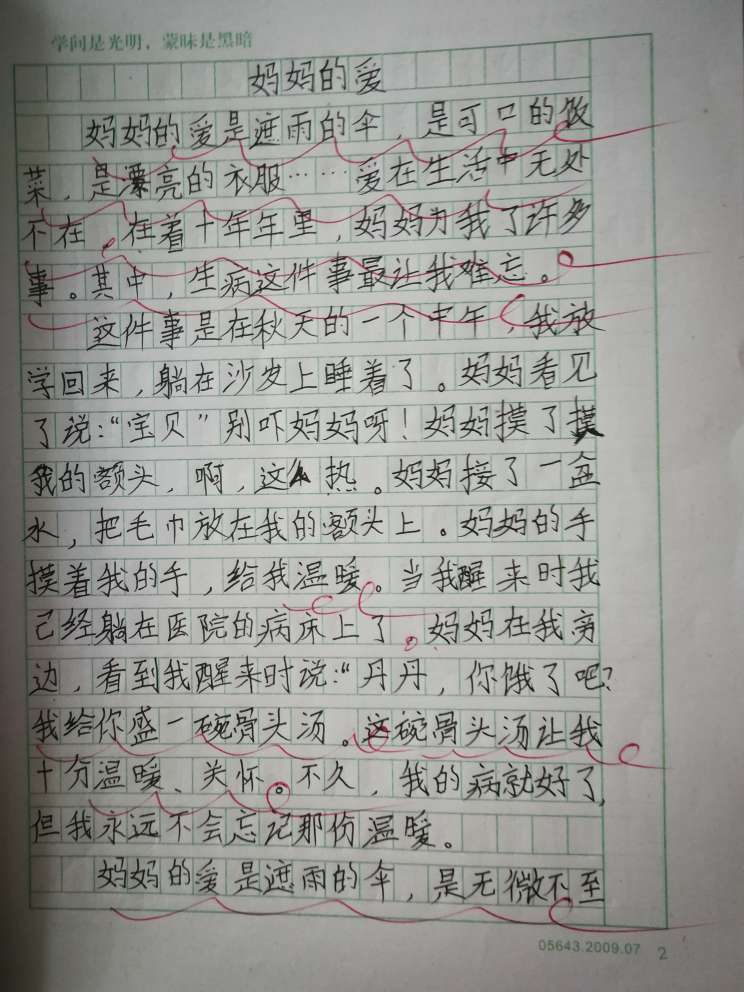 学问是光明，蒙昧是黑暗
妈妈的爱
妈妈的爱是遮雨的伞，是可口的饭
菜，是漂亮的衣服……爱在生活中无处
不在。在着十年年里，妈妈为我了许多
事。其中，生病这件事最让我难忘。
这件事是在秋天的一个中午，我放
学回来，躺在沙发上睡着了。妈妈看见
了说：“宝贝”别吓妈妈呀！妈妈摸了摸
我的额头，啊，这么热。妈妈接了一盆
水，把毛巾放在我的额头上。妈妈的手
摸着我的手，给我温暖。当我醒来时我
己经躺在医院的病床上了。妈妈在我旁
边，看到我醒来时说：“丹丹，你饿了吧？
我给你盛一碗骨头汤。这碗骨头汤让我
十分温暖、关怀。不久，我的病就好了，
但我永远不会忘记那份温暖。
妈妈的爱是遮雨的伞，是无微不至
05643.2009.07 2